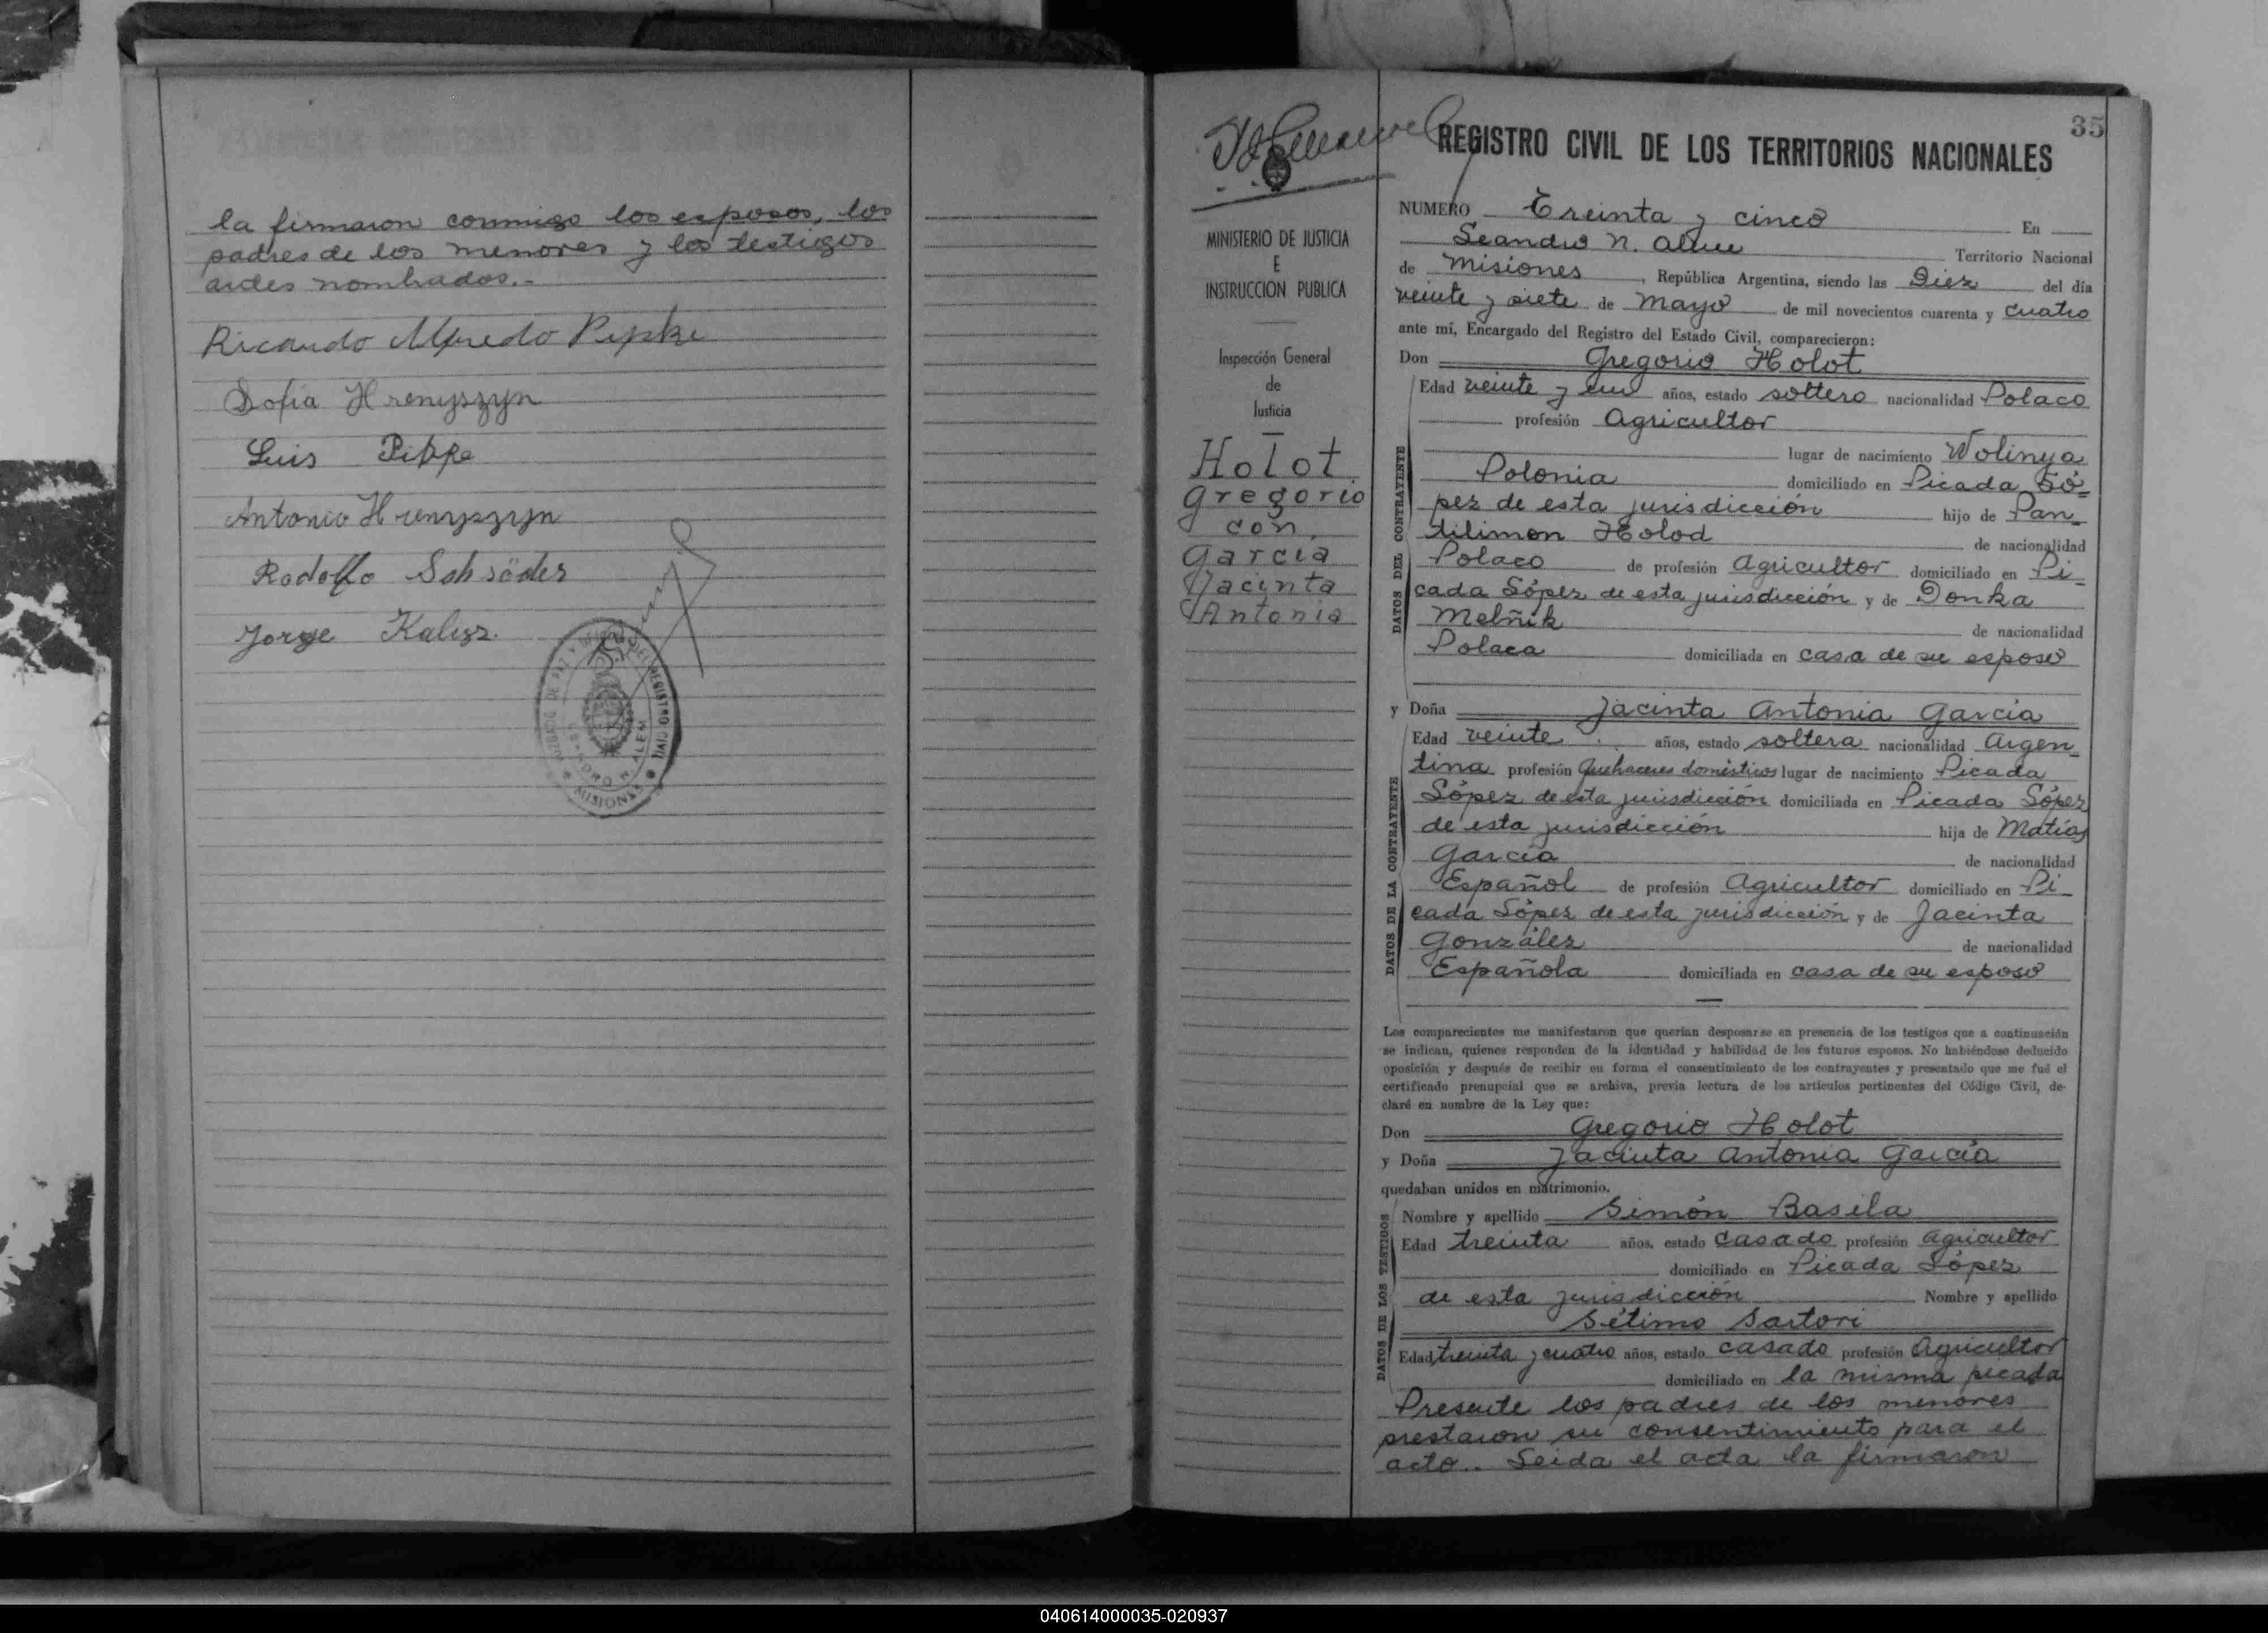 la firmaron conmigo los esposos, los
padres de los menores y los testigos
antes nombrados.-
Ricardo Alfredo Pipke
Sofía Hrenyszyn
Luis Pipke
Antonio Hrenyszyn
Rodolfo Schröder
Jorge Kalisz.
LEANDRO N. ALEM
MISIONES
35
REGISTRO CIVIL DE LOS TERRITORIOS NACIONALES
MINISTERIO DE JUSTICIA
E
INSTRUCCION PUBLICA
Inspección General
de
Justicia
Holot
Gregorio
con
García
Jacinta
Antonia
NUMERO Treinta y cinco En
Leandro N. Alem Territorio Nacional
de Misiones, República Argentina, siendo las Diez del día
veinte y siete de Mayo de mil novecientos cuarenta y cuatro
ante mí, Encargado del Registro del Estado Civil, comparecieron:
Don Gregorio Holot
DATOS DEL CONTRAYENTE
Edad veinte y un años, estado soltero nacionalidad Polaco
profesión Agricultor
lugar de nacimiento Wolinya
Polonia domiciliado en Picada Ló=
pez de esta jurisdicción hijo de Pan=
tilimon Holod de nacionalidad
Polaco de profesión Agricultor domiciliado en Pi=
cada López de esta jurisdicción y de Donka
Melñik de nacionalidad
Polaca domiciliada en casa de su esposo
y Doña Jacinta Antonia García
DATOS DE LA CONTRAYENTE
Edad veinte años, estado soltera nacionalidad Argen=
tina profesión Quehaceres domésticos lugar de nacimiento Picada
López de esta jurisdicción domiciliada en Picada López
de esta jurisdicción hija de Matías
García de nacionalidad
Español de profesión Agricultor domiciliado en Pi=
cada López de esta jurisdicción y de Jacinta
González de nacionalidad
Española domiciliada en casa de su esposo
Los comparecientes me manifestaron que querían desposarse en presencia de los testigos que a continuación
se indican, quienes responden de la identidad y habilidad de los futuros esposos. No habiéndose deducido
oposición y después de recibir en forma el consentimiento de los contrayentes y presentado que me fué el
certificado prenupcial que se archiva, previa lectura de los artículos pertinentes del Código Civil, de-
claré en nombre de la Ley que:
Don Gregorio Holot
y Doña Jacinta Antonia García
quedaban unidos en matrimonio.
DATOS DE LOS TESTIGOS
Nombre y apellido Simón Basila
Edad treinta años, estado casado profesión Agricultor
domiciliado en Picada López
de esta jurisdicción Nombre y apellido
Sétimo Sartori
Edad treinta y cuatro años, estado casado profesión Agricultor
domiciliado en la misma picada
Presente los padres de los menores
prestaron su consentimiento para el
acto.. Leida el acta la firmaron
040614000035-020937